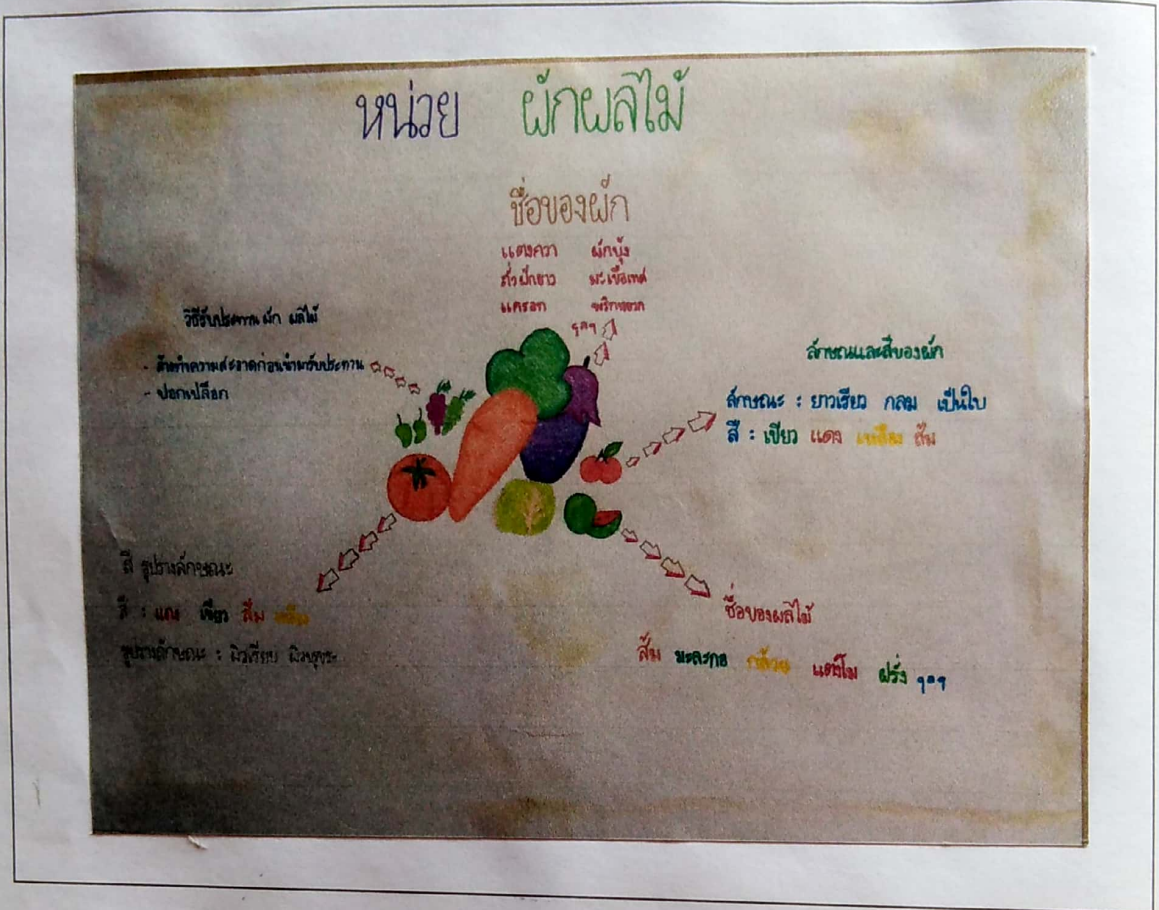 หน่วย ผักผลไม้
ชื่อของผัก
แตงกวา ผักบุ้ง
ถั่วฝักยาว มะเขือเทศ
แครอท พริกหยวก
ฯลฯ
วิธีรับประทานผัก ผลไม้
- ล้างทำความสะอาดก่อนนำมารับประทาน
- ปอกเปลือก
ลักษณะและสีของผัก
ลักษณะ : ยาวเรียว กลม เป็นใบ
สี : เขียว แดง เหลือง ส้ม
สี รูปร่างลักษณะ
สี : แดง เขียว ส้ม เหลือง
รูปร่างลักษณะ : ผิวเรียบ ผิวขรุขระ
ชื่อของผลไม้
ส้ม มะละกอ กล้วย แตงโม ฝรั่ง ฯลฯ